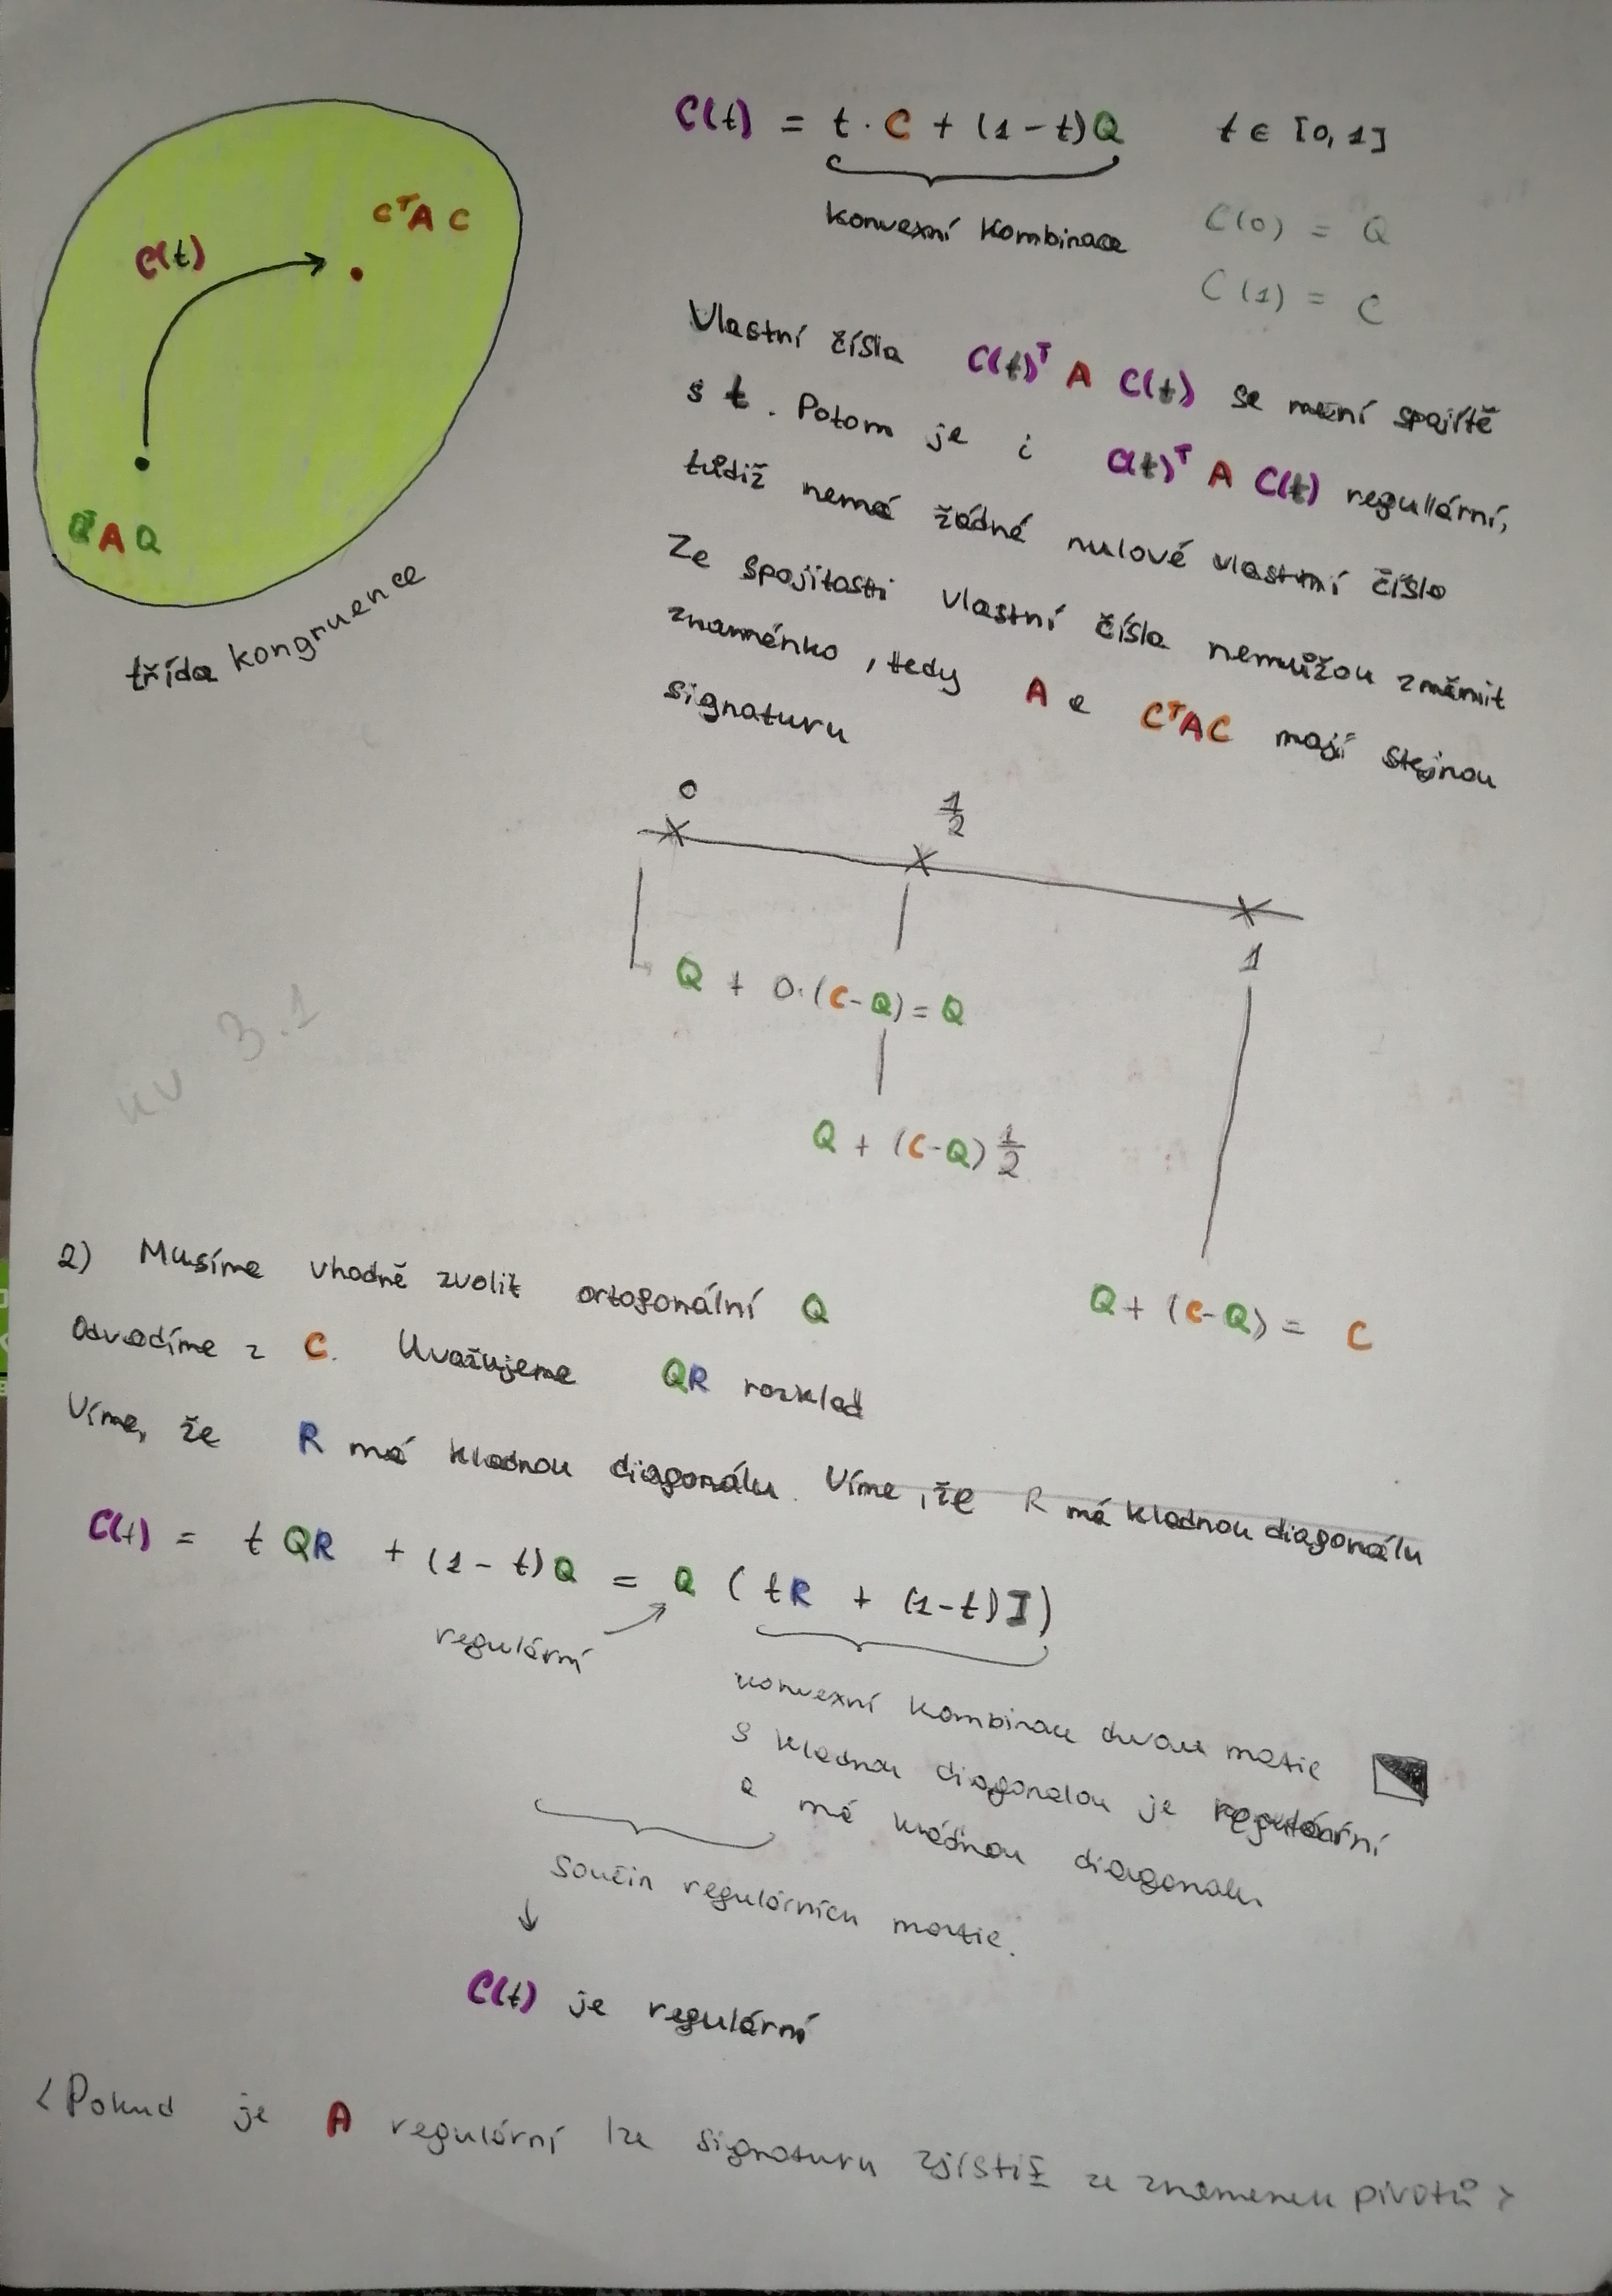 C(t) = t · C + (1 - t)Q    t ∈ [0, 1]
konvexní kombinace
C(0) = Q
C(1) = C
C^T A C
C(t)
Q^T A Q
třída kongruence
Vlastní čísla C(t)^T A C(t) se mění spojitě
s t. Potom je i C(t)^T A C(t) regulární,
tudíž nemá žádné nulové vlastní číslo
Ze spojitosti vlastní čísla nemůžou změnit
znaménko, tedy A a C^T A C mají stejnou
signaturu
0    1/2    1
Q + 0·(C-Q) = Q
Q + (C-Q) 1/2
Q + (C-Q) = C
3.1
2) Musíme vhodně zvolit ortogonální Q
Odvodíme z C. Uvažujeme QR rozklad
Víme, že R má kladnou diagonálu. Víme, že R má kladnou diagonálu
C(t) = t QR + (1 - t)Q = Q (tR + (1-t)I)
regulární
konvexní kombinace dvou matic
s kladnou diagonalou je regulární
a má kladnou diagonalu
součin regulárních matic.
↓
C(t) je regulární
<Pokud je A regulární lze signaturu zjistit ze znamenek pivotů>